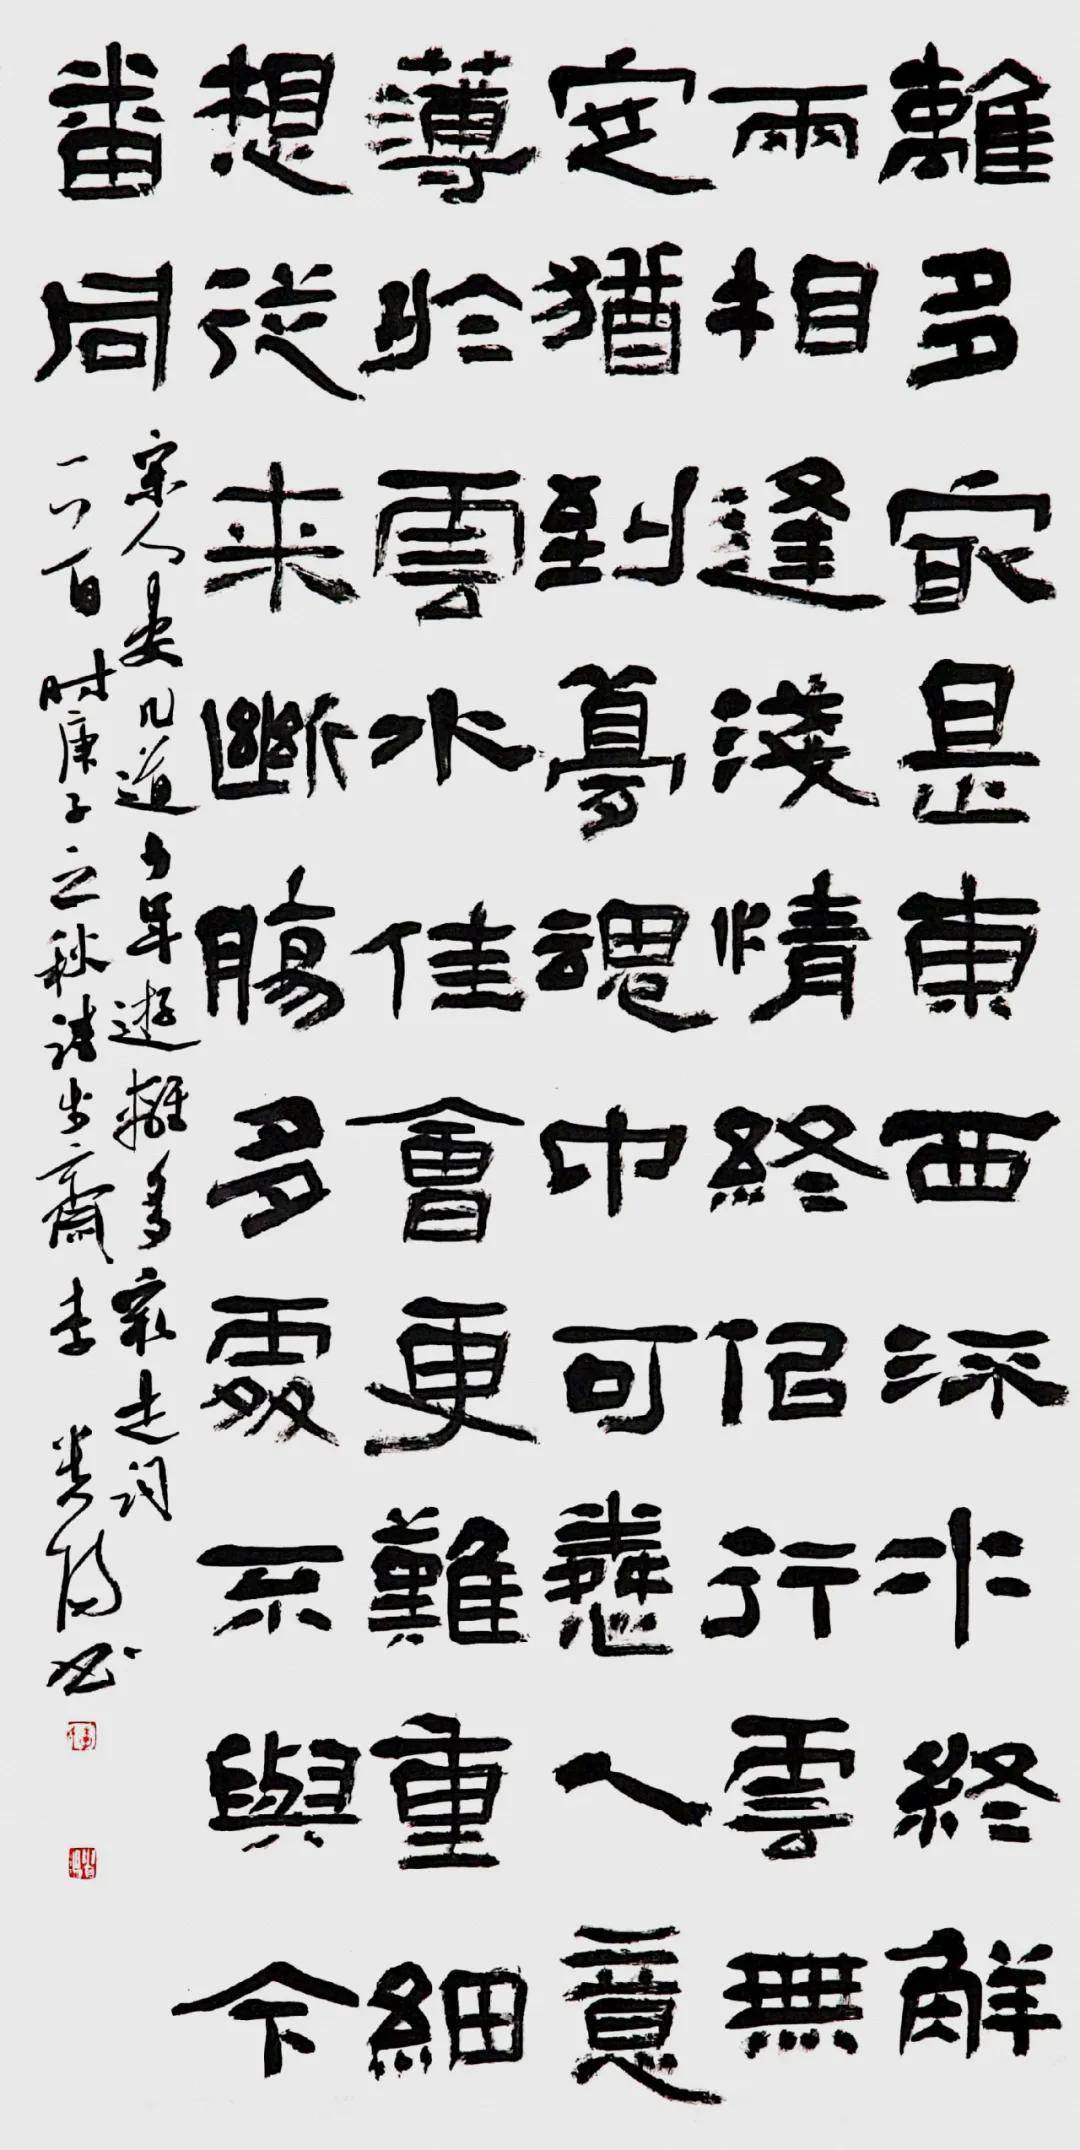 離多最是東西流水終解
兩相逢淺情終佀行雲無
定猶到夢魂中可憐人意
薄於雲水佳會更難重細
想從来斷腸多處不與今
番同
宋人晏几道少年遊離多最是词
一首时庚子之秋齋李书